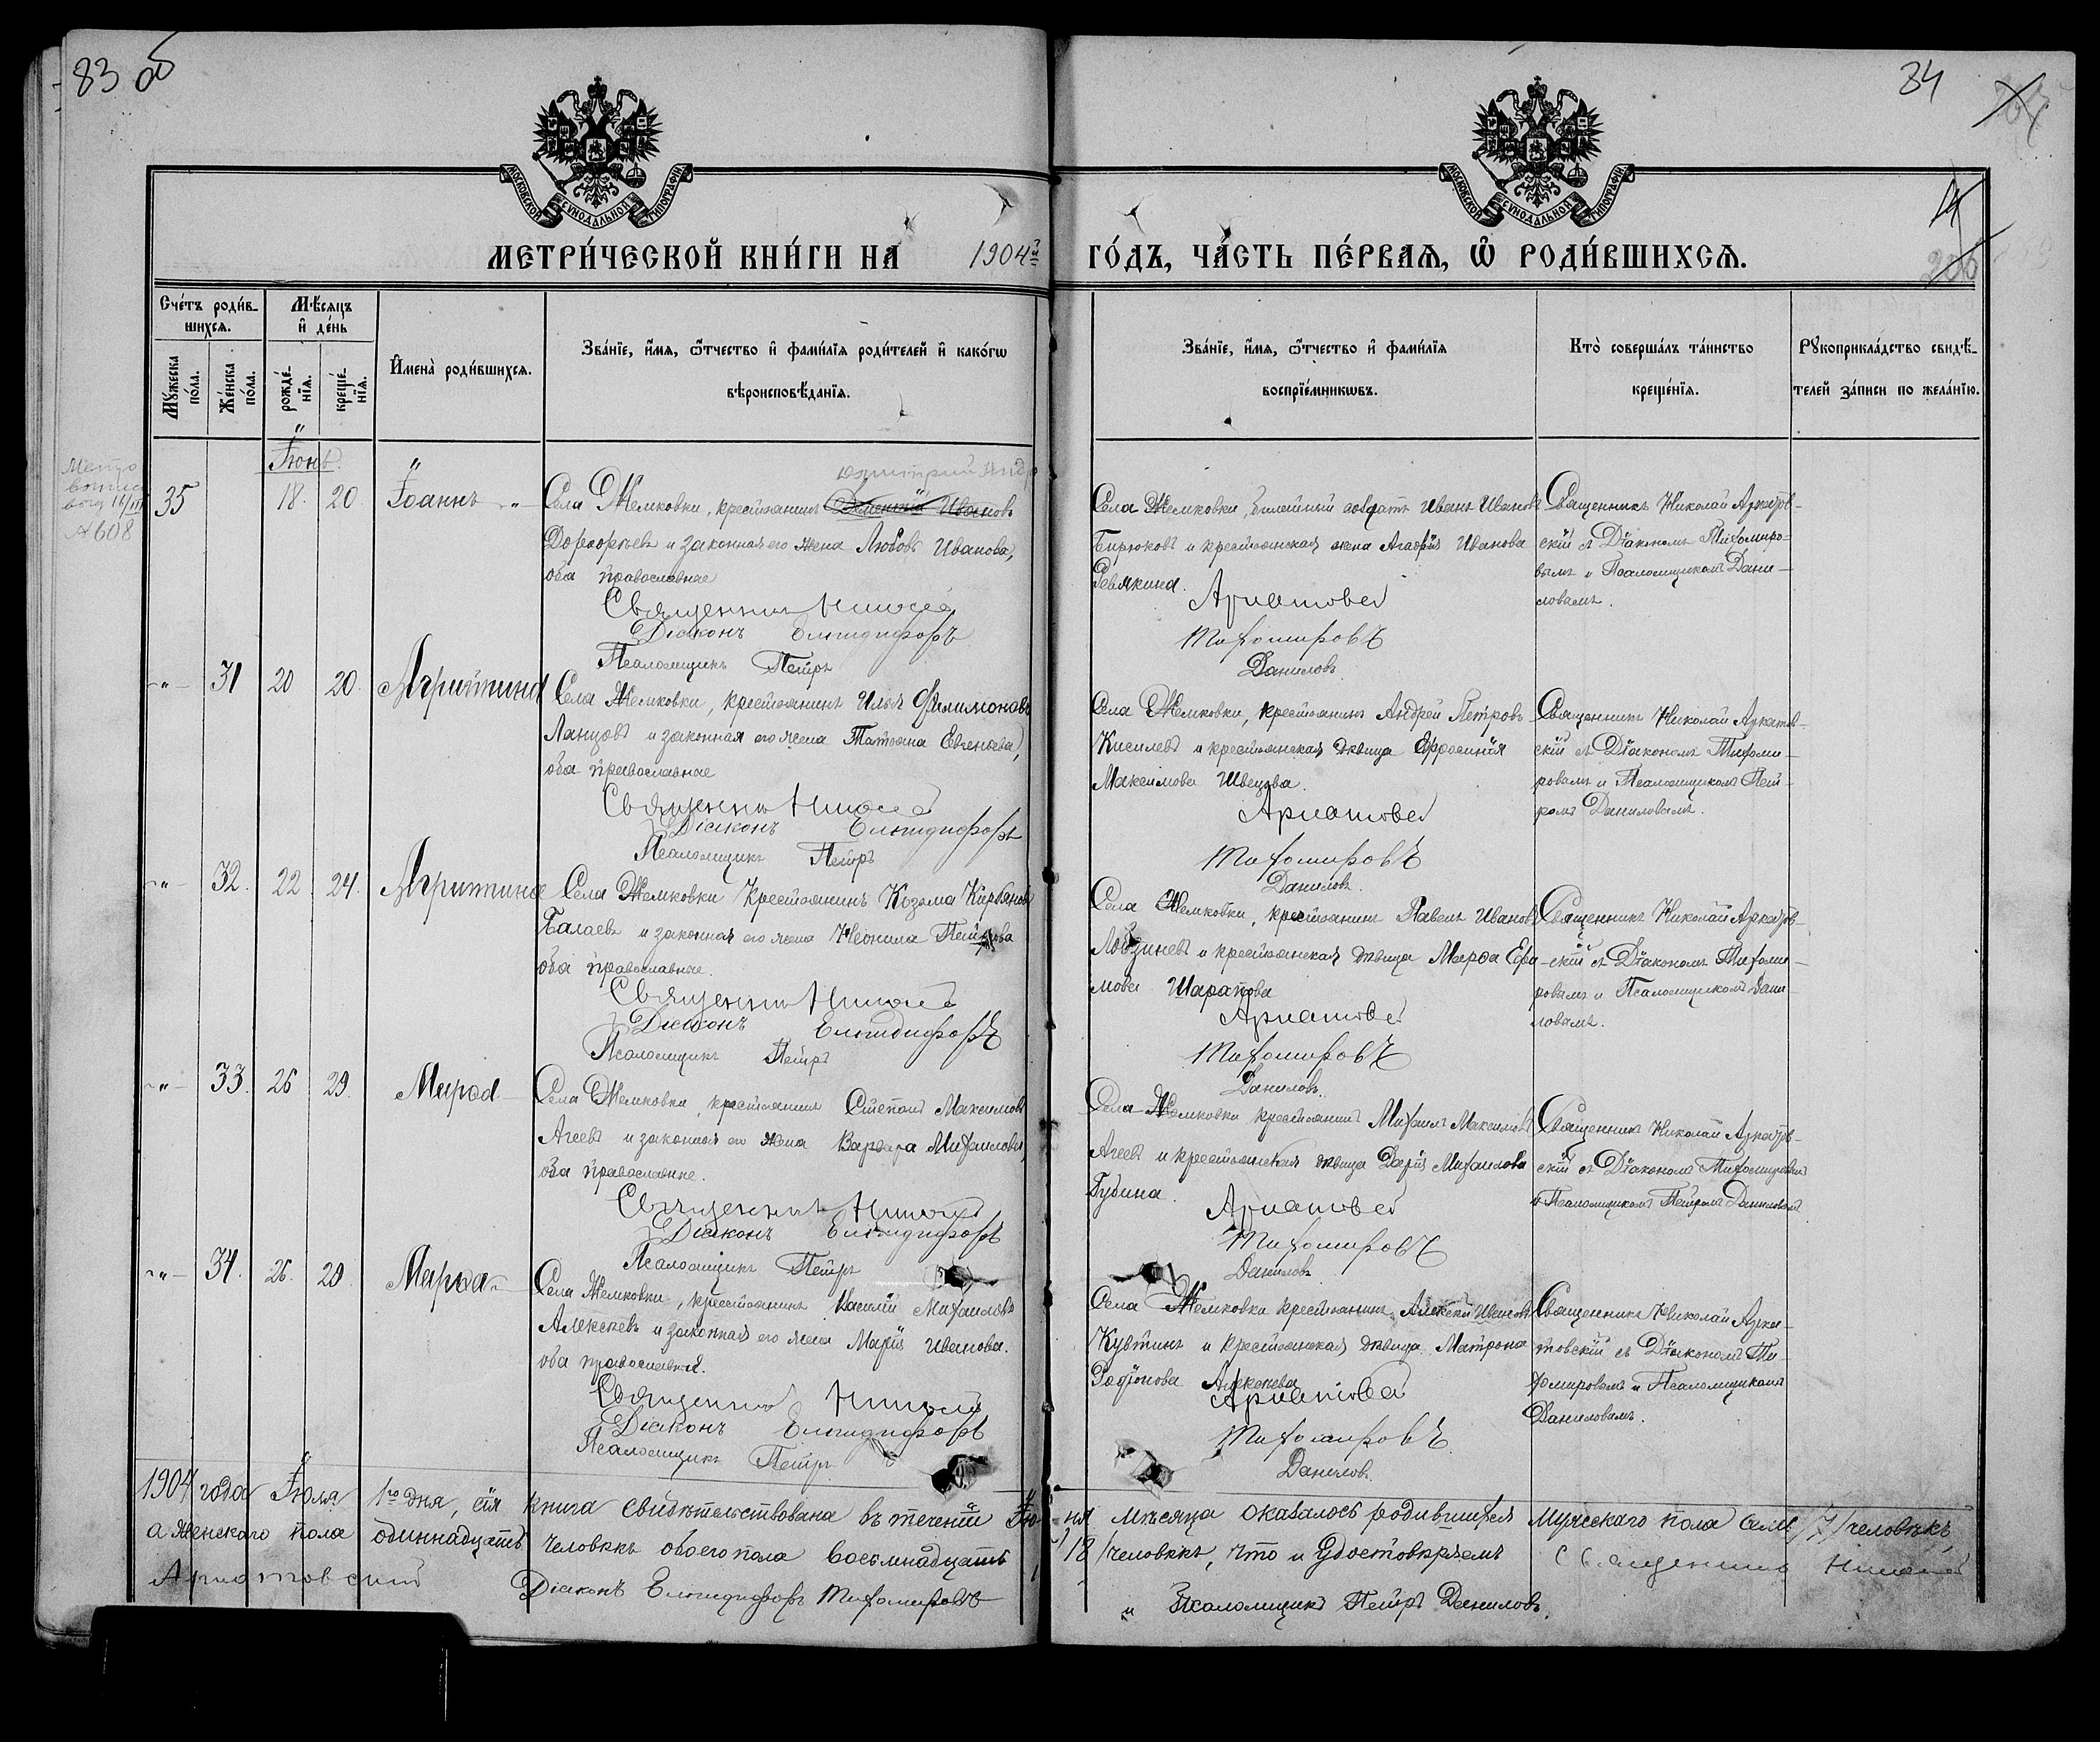 83 об
84
МОСКОВСКОЙ СѴНОДАЛЬНОЙ ТИПОГРАФІИ
МОСКОВСКОЙ СѴНОДАЛЬНОЙ ТИПОГРАФІИ
МЕТРИ́ЧЕСКОЙ КНИ́ГИ НА 1904й ГО́ДЪ, ЧА́СТЬ ПЕ́РВАЯ, Ѡ РОДИ́ВШИХСЯ.
Сче́тъ роди́в-
шихся.
Мѣ́сяцъ
и де́нь
Мꙋ́жеска
по́ла.
Же́нска
по́ла.
рожде́-
нія.
креще́-
нія.
И҆мена̀ роди́вшихся.
Зва́ніе, и҆́мя, ѻ҆́тчество и҆ фами́лія роди́телей и҆ како́гѡ
вѣроисповѣ́данія.
Зва́ніе, и҆́мя, ѻ҆́тчество и҆ фами́лія
воспріе́мникѡвъ.
Кто̀ соверша́лъ та́инство
креще́нія.
Рꙋкоприкла́дство свидѣ́-
телей за́писи по жела́нію.
Іюнь.
А 608
35 18. 20 Іоаннъ
Села Жемковки, крестьянинъ Ивановъ
Дорофѣевъ и законная его жена Любовь Иванова,
оба православные
Священникъ Николай
Діаконъ Елпидифоръ
Псаломщикъ Петръ
Села Жемковки, билетный солдатъ Иванъ Ивановъ
Бирюковъ и крестьянская жена Агафія Иванова
Ревякина.
Аркатовс
Тихомировъ
Даниловъ
Священникъ Николай Аркатов-
скій съ Діакономъ Тихомиро-
вымъ и Псаломщикомъ Дани-
ловымъ.
31 20 20 Агриппина
Села Жемковки, крестьянинъ Илья Филимоновъ
Ланцовъ и законная его жена Татьяна Евгеньева,
оба православные
Священникъ Николай
Діаконъ Елпидифоръ
Псаломщикъ Петръ
Села Жемковки, крестьянинъ Андрей Петровъ
Киселевъ и крестьянская дѣвица Ефросинія
Максимова Швецова.
Аркатовс
Тихомировъ
Даниловъ.
Священникъ Николай Аркатов-
скій съ Діакономъ Тихоми-
ровымъ и Псаломщикомъ Пет-
ромъ Даниловымъ.
32. 22. 24. Агриппина
Села Жемковки Крестьянинъ Козьма Кирьяновъ
Балаевъ и законная его жена Неонила Петрова
оба православные.
Священникъ Николай
Діаконъ Елпидифоръ
Псаломщикъ Петръ
Села Жемковки, крестьянинъ Павелъ Ивановъ
Лобзиневъ и крестьянская дѣвица Марѳа Ефи-
мова Шарапова
Аркатовс
Тихомировъ
Даниловъ.
Священникъ Николай Аркатов-
скій съ Діакономъ Тихоми-
ровымъ и Псаломщикомъ Дани-
ловымъ.
33. 26 29. Марѳа
Села Жемковки, крестьянинъ Степанъ Максимовъ
Агеевъ и законная его жена Варвара Михаилова,
оба православные.
Священникъ Николай
Діаконъ Елпидифоръ
Псаломщикъ Петръ
Села Жемковки крестьянинъ Михаилъ Максимовъ
Агеевъ и крестьянская дѣвица Дарія Михаилова
Губина.
Аркатовс
Тихомировъ
Даниловъ
Священникъ Николай Аркатов-
скій съ Діакономъ Тихомировымъ
и Псаломщикомъ Петромъ Даниловымъ
34. 26. 29 Марѳа
Села Жемковки, крестьянинъ Василій Михаиловъ
Алексѣевъ и законная его жена Марія Иванова.
оба православные.
Священникъ Николай
Діаконъ Елпидифоръ
Псаломщикъ Петръ
Села Жемковки крестьянинъ Алексѣй Ивановъ
Кувтинъ и крестьянская дѣвица Матрона
Родіонова Алексѣева
Аркатовс
Тихомировъ.
Даниловъ.
Священникъ Николай Арка-
товскій съ Діакономъ Ти-
хомировымъ и Псаломщикомъ
Даниловымъ.
1904 года Іюля 1го дня, сія книга свидѣтельствована въ теченіи Іюня мѣсяца оказалось родившихся мужескаго пола семь /7/ человѣкъ,
а женскаго пола одиннадцать человѣкъ обоего пола восемнадцать /18/ человѣкъ, что и удостовѣряемъ Священникъ Николай
Аркатовскій Діаконъ Елпидифоръ Тихомировъ и Псаломщикъ Петръ Даниловъ.